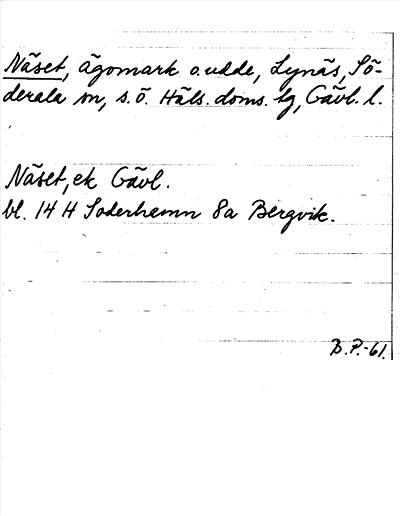 Näset, ägomark o. udde, Lynäs, Sö-
derala sn, s.ö. Häls. doms. tg, Gävl. l.
Näset, ek Gävl.
bl. 14 H Söderhamn 8a Bergvik.
B.P.-61.